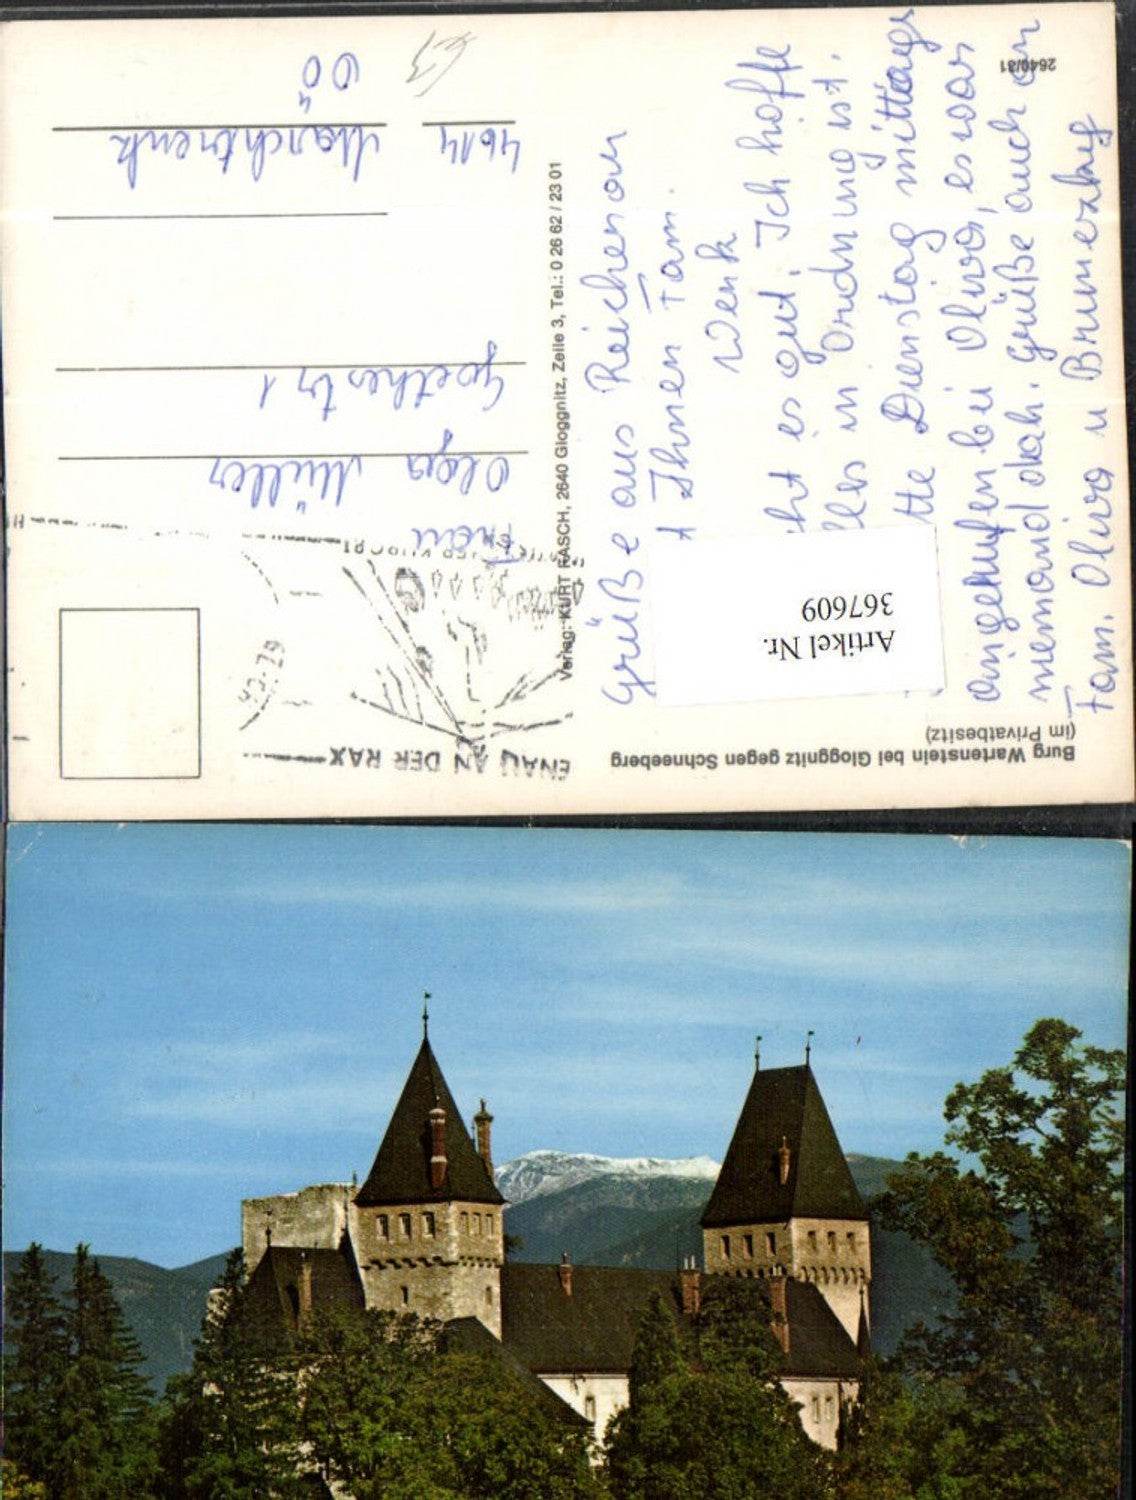 Burg Wartenstein bei Gloggnitz gegen Schneeberg
(im Privatbesitz)
2640/81
Verlag: KURT RASCH, 2640 Gloggnitz, Zeile 3, Tel.: 0 26 62 / 23 01
ENAU AN DER RAX
Frau
Olga Müller
Goethestr 1
4614 Marchtrenk
OÖ
Grüße aus Reichenau
Ihnen Fam.
Wenk
ht es gut. Ich hoffe
lles in Ordnung ist.
tte Dienstag mittags
angerufen bei Oliva, es war
niemand dah. Grüße auch an
Fam. Oliva u
Artikel Nr.
367609